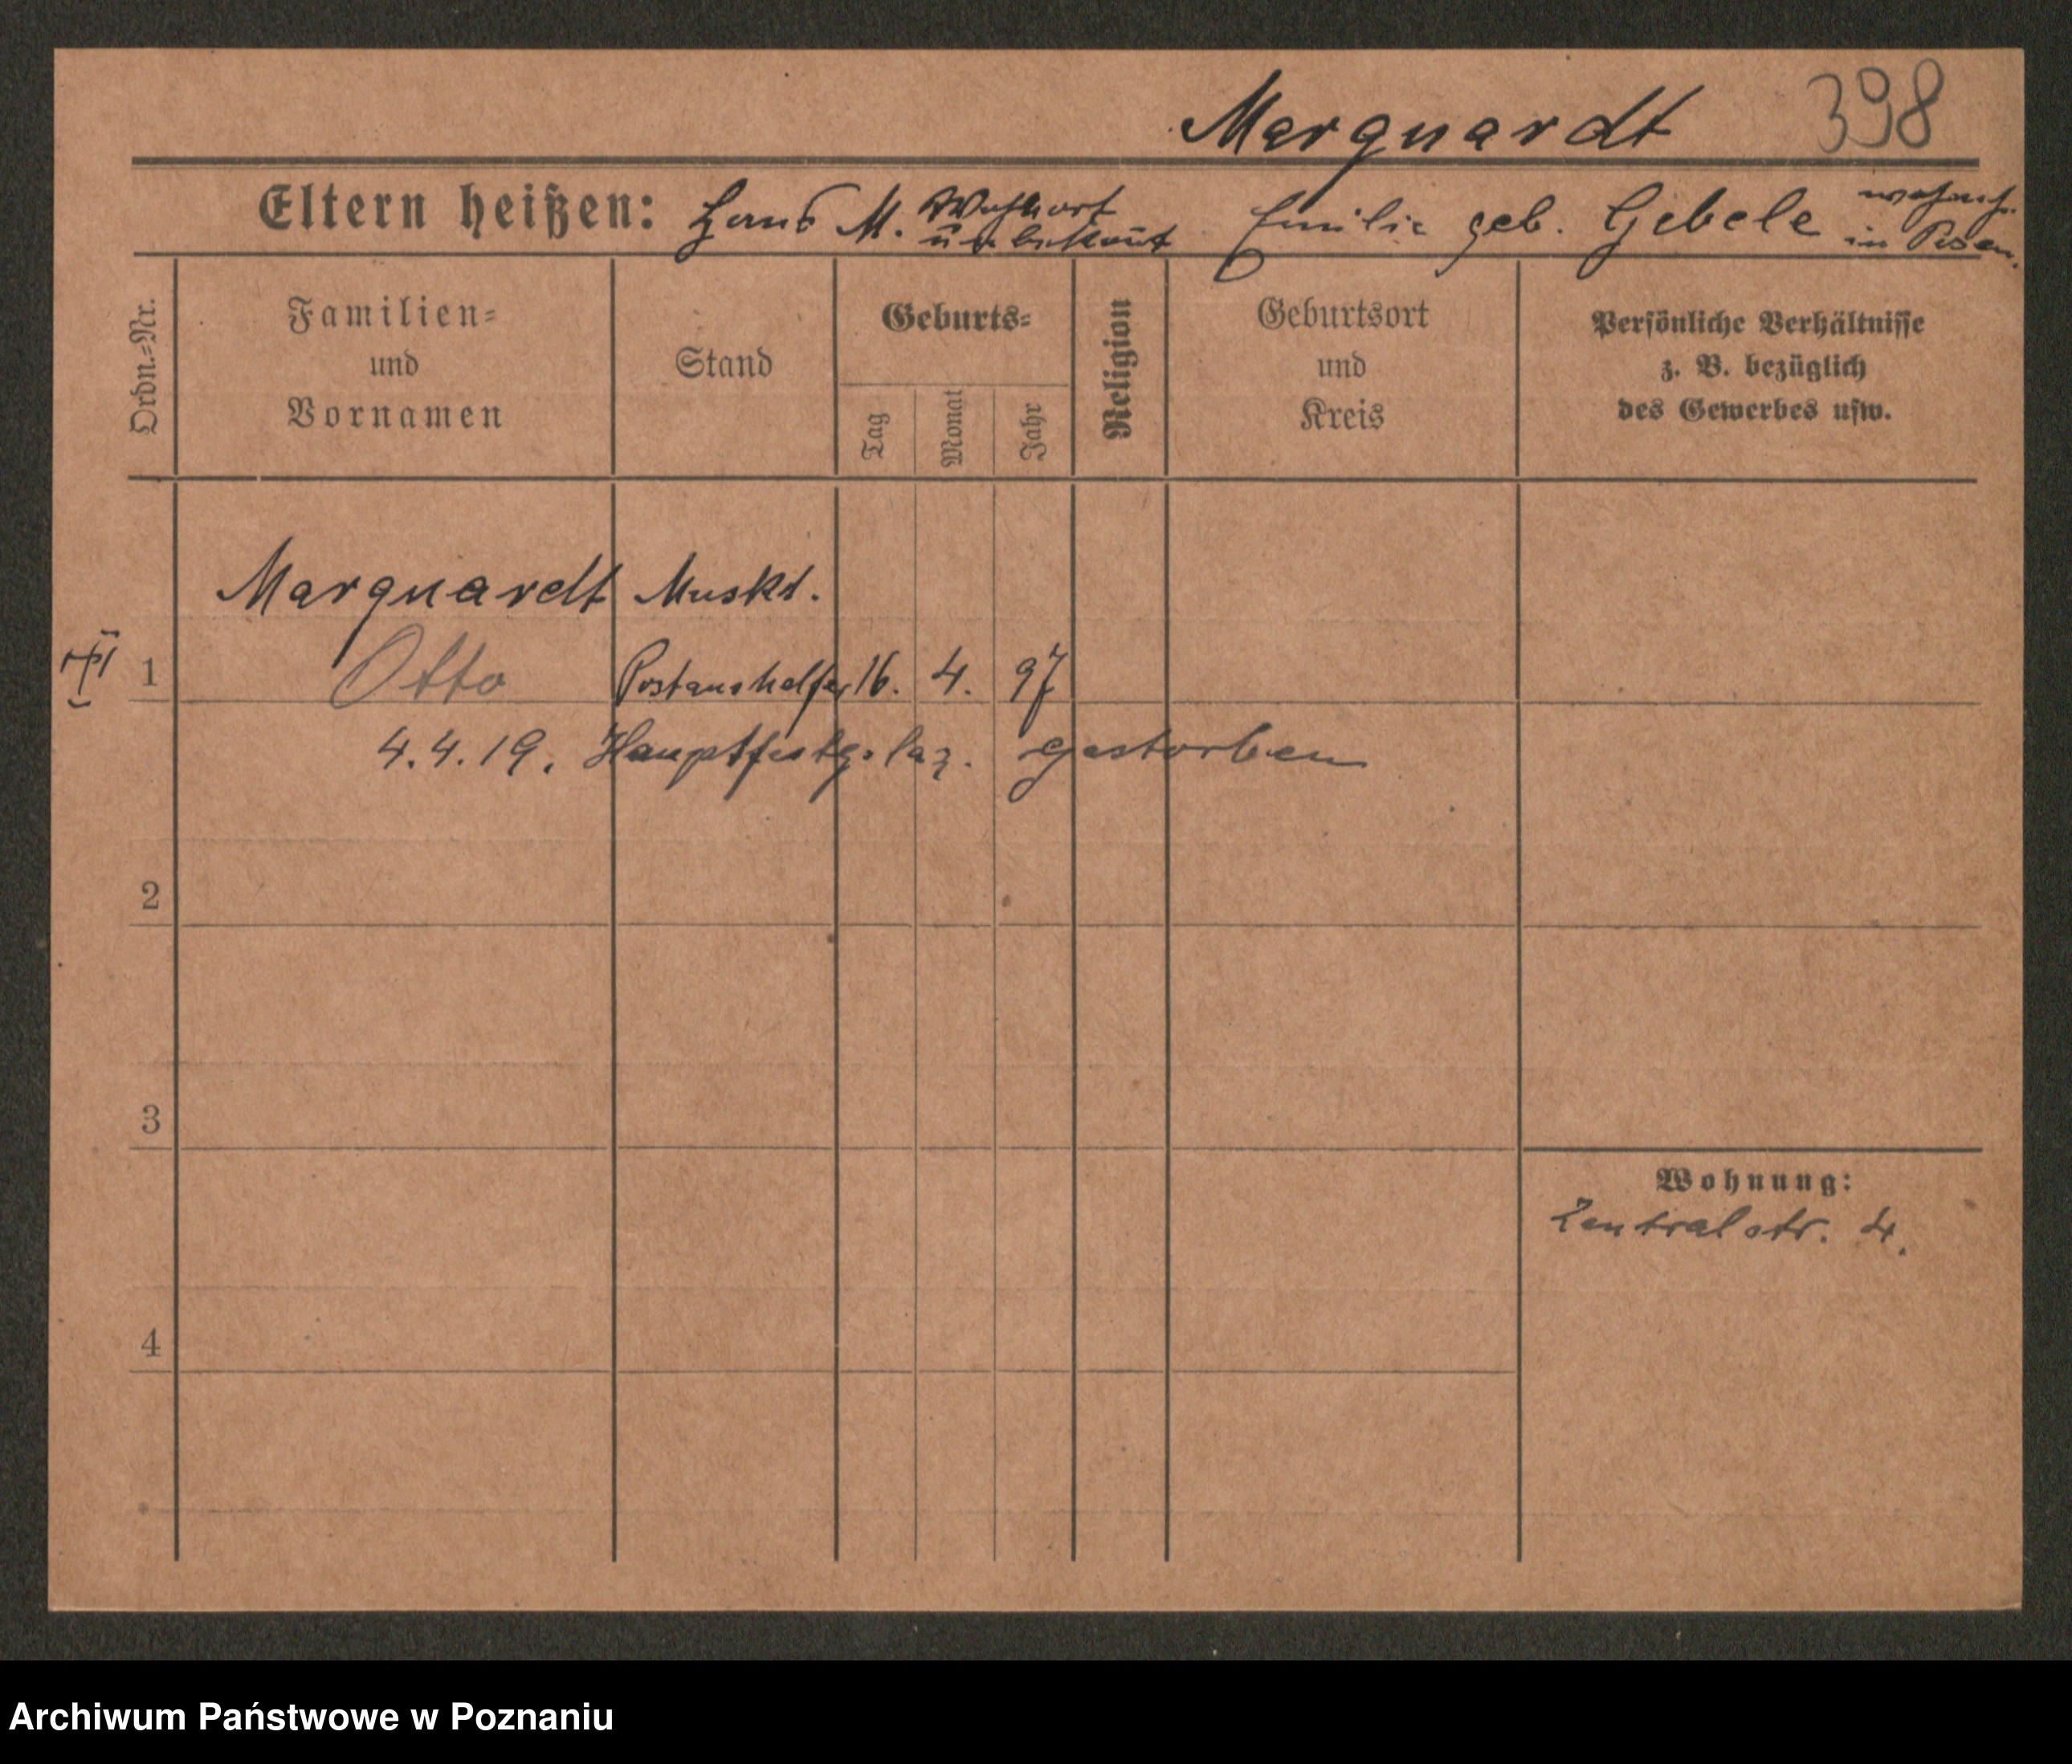 Marquardt 398
Eltern heißen: Hans M. Wohnort unbekannt Emilie geb. Gebele wohnh. in Posen.
Ordn.=Nr.
Familien=
und
Vornamen
Stand
Geburts=
Tag
Monat
Jahr
Religion
Geburtsort
und
Kreis
Persönliche Verhältnisse
z. B. bezüglich
des Gewerbes usw.
Marquardt Muskt.
1 Otto Postaushelfer 16. 4. 97
4.4.19. Hauptfestgs. laz. gestorben
2
3
Wohnung:
Zentralstr. 4.
4
Archiwum Państwowe w Poznaniu